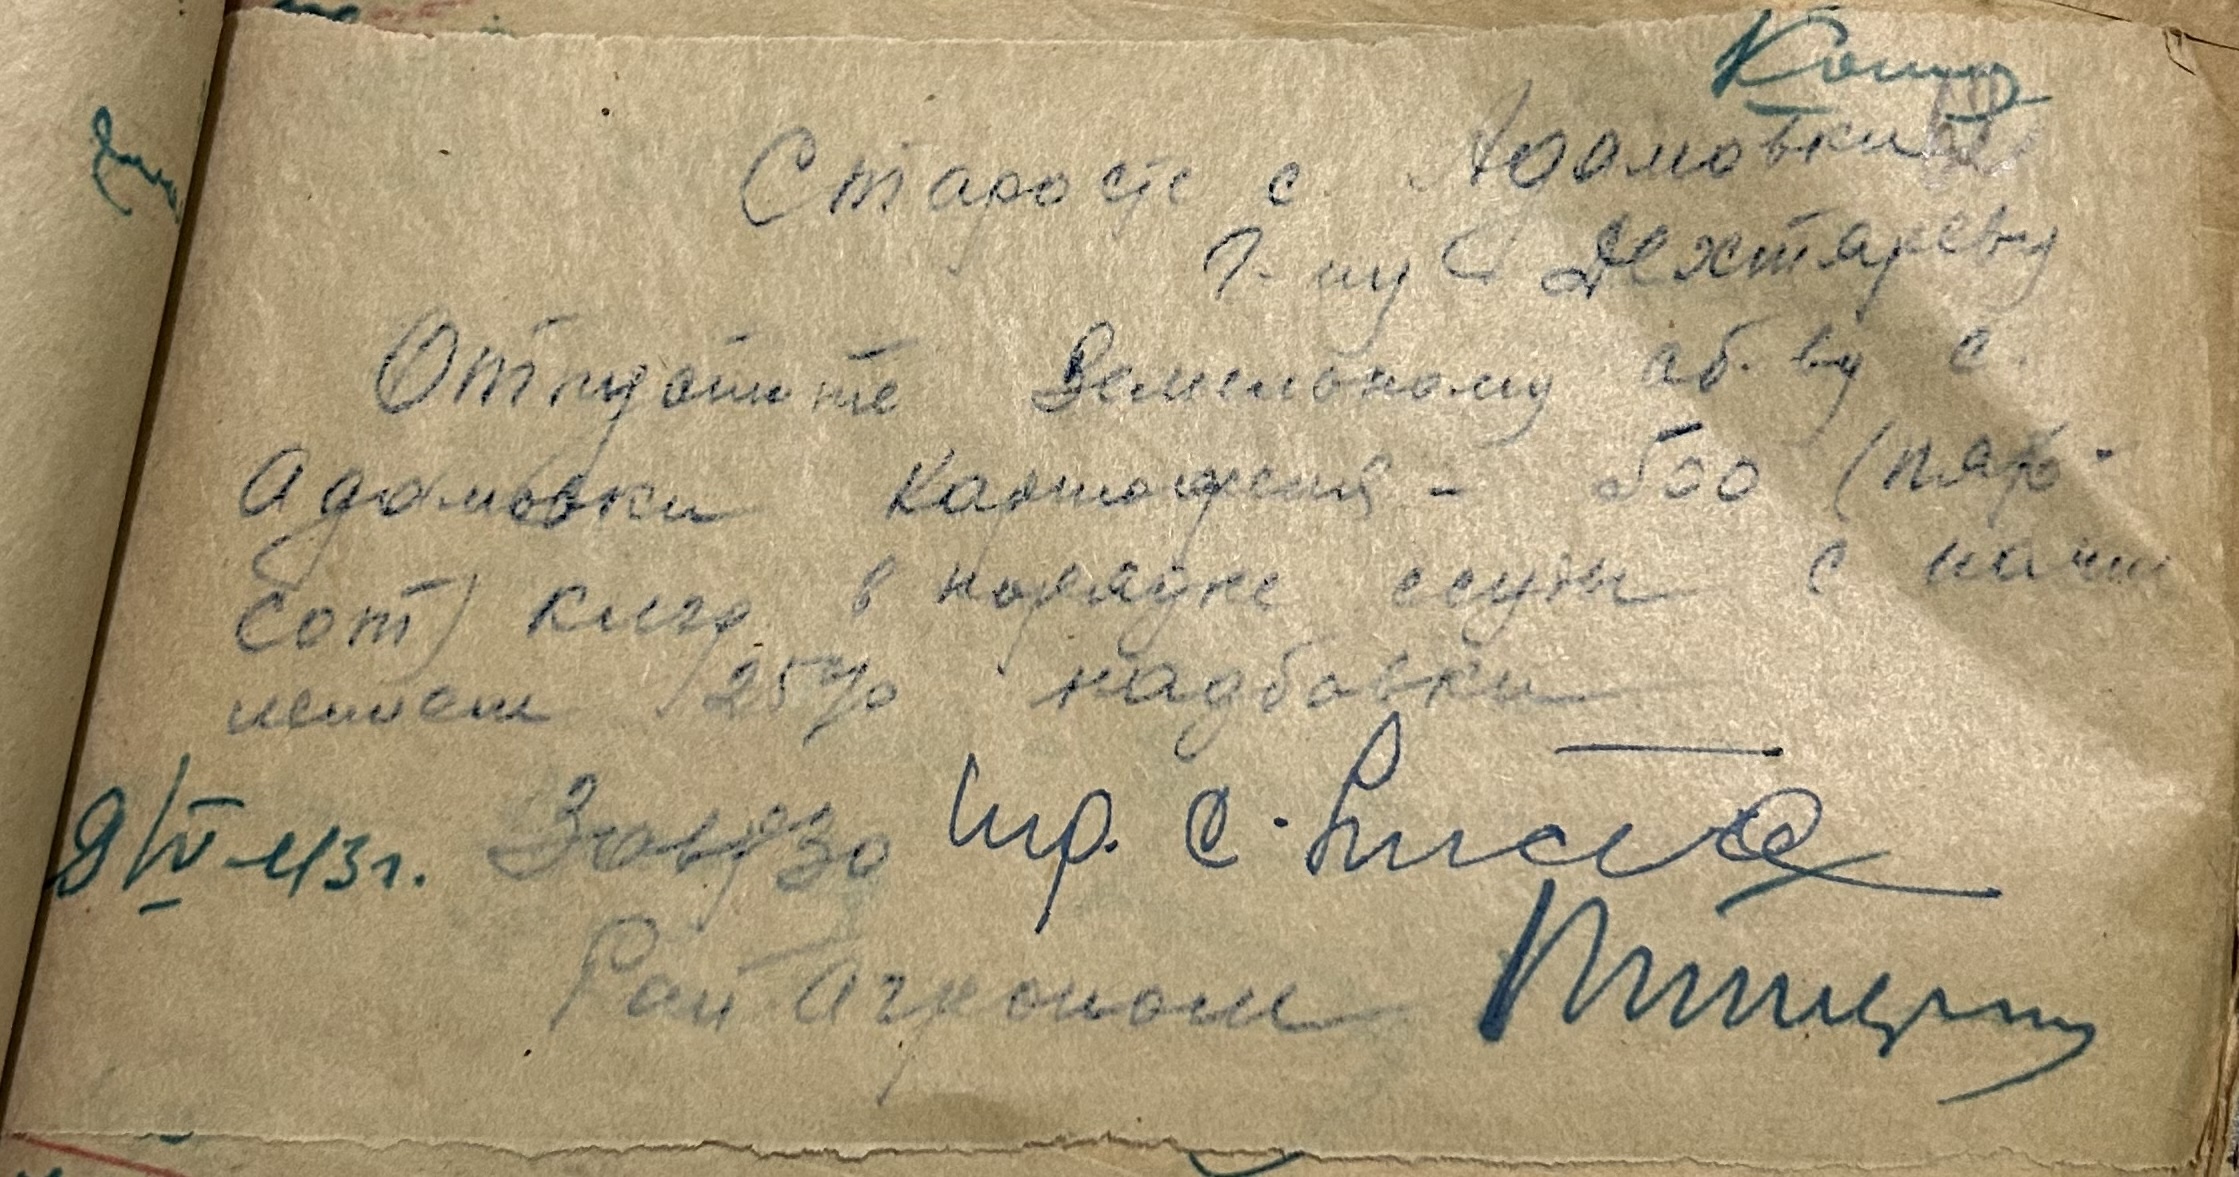 Копия
Старосте с. Адамовки
Г-ну Дехтяреву
Отпустите Земельному об-ву с.
Адамовки Картофеля - 500 (пять-
сот) клгр в порядке ссуды с начи
слением 25% надбавки
8/IV-43г. Зав РЗО
Рай Агроном